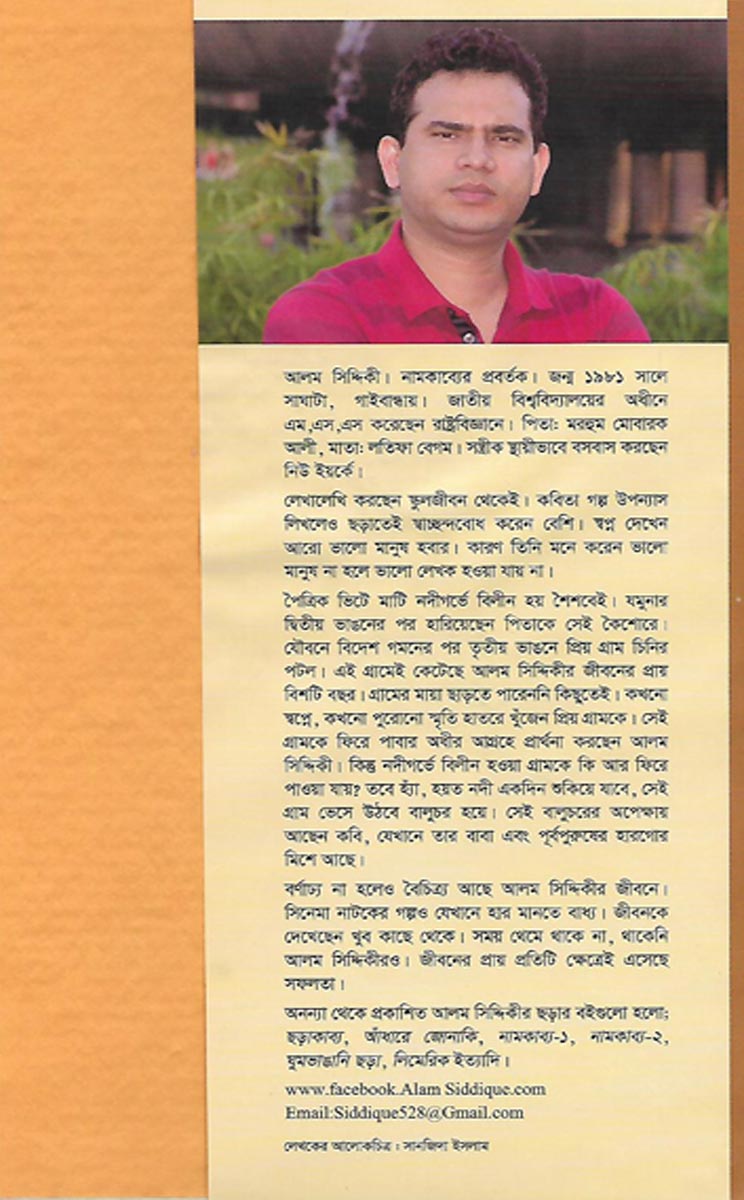 আলম সিদ্দিকী। নামকাব্যের প্রবর্তক। জন্ম ১৯৮১ সালে
সাঘাটা, গাইবান্ধায়। জাতীয় বিশ্ববিদ্যালয়ের অধীনে
এম,এস,এস করেছেন রাষ্ট্রবিজ্ঞানে। পিতা: মরহুম মোবারক
আলী, মাতা: লতিফা বেগম। সস্ত্রীক স্থায়ীভাবে বসবাস করছেন
নিউ ইয়র্কে।
লেখালেখি করছেন স্কুলজীবন থেকেই। কবিতা গল্প উপন্যাস
লিখলেও ছড়াতেই স্বাচ্ছন্দবোধ করেন বেশি। স্বপ্ন দেখেন
আরো ভালো মানুষ হবার। কারণ তিনি মনে করেন ভালো
মানুষ না হলে ভালো লেখক হওয়া যায় না।
পৈত্রিক ভিটে মাটি নদীগর্ভে বিলীন হয় শৈশবেই। যমুনার
দ্বিতীয় ভাঙনের পর হারিয়েছেন পিতাকে সেই কৈশোরে।
যৌবনে বিদেশ গমনের পর তৃতীয় ভাঙনে প্রিয় গ্রাম চিনির
পটল। এই গ্রামেই কেটেছে আলম সিদ্দিকীর জীবনের প্রায়
বিশটি বছর। গ্রামের মায়া ছাড়তে পারেননি কিছুতেই। কখনো
স্বপ্নে, কখনো পুরোনো স্মৃতি হাতরে খুঁজেন প্রিয় গ্রামকে। সেই
গ্রামকে ফিরে পাবার অধীর আগ্রহে প্রার্থনা করছেন আলম
সিদ্দিকী। কিন্তু নদীগর্ভে বিলীন হওয়া গ্রামকে কি আর ফিরে
পাওয়া যায়? তবে হ্যাঁ, হয়ত নদী একদিন শুকিয়ে যাবে, সেই
গ্রাম ভেসে উঠবে বালুচর হয়ে। সেই বালুচরের অপেক্ষায়
আছেন কবি, যেখানে তার বাবা এবং পূর্বপুরুষের হারগোর
মিশে আছে।
বর্ণাঢ্য না হলেও বৈচিত্র্য আছে আলম সিদ্দিকীর জীবনে।
সিনেমা নাটকের গল্পও যেখানে হার মানতে বাধ্য। জীবনকে
দেখেছেন খুব কাছে থেকে। সময় থেমে থাকে না, থাকেনি
আলম সিদ্দিকীরও। জীবনের প্রায় প্রতিটি ক্ষেত্রেই এসেছে
সফলতা।
অনন্যা থেকে প্রকাশিত আলম সিদ্দিকীর ছড়ার বইগুলো হলো;
ছড়াকাব্য, আঁধারে জোনাকি, নামকাব্য-১, নামকাব্য-২,
ঘুমভাঙানি ছড়া, লিমেরিক ইত্যাদি।
www.facebook.Alam Siddique.com
Email:Siddique528@Gmail.com
লেখকের আলোকচিত্র : সানজিদা ইসলাম